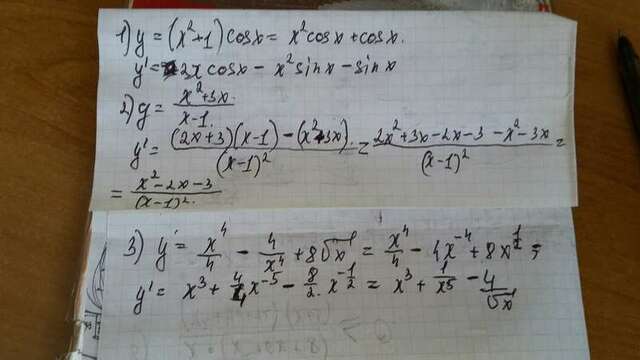 1) y = (x²+1) cosx = x²cosx + cosx.
y' = 2x cosx - x²sinx - sinx
2) y = (x²+3x)/(x-1)
y' = ((2x+3)(x-1) - (x²+3x))/(x-1)² = (2x²+3x-2x-3-x²-3x)/(x-1)² =
= (x²-2x-3)/(x-1)².
3) y' = x⁴/4 - 4/x⁴ + 8√x = x⁴/4 - 4x⁻⁴ + 8x^(1/2) ;
y' = x³ + 4x⁻⁵ - 8/2 x^(-1/2) = x³ + 1/x⁵ - 4/√x